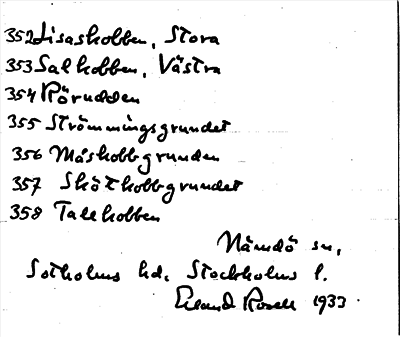 352 Lisaskobben, Stora
353 Salkobben, Västra
354 Rörudden
355 Strömmingsgrundet
356 Måskobbgrunden
357 Skötkobbgrundet
358 Tallkobben
Nämdö sn,
Sotholms hd. Stockholms l.
Erland Rosell 1933.